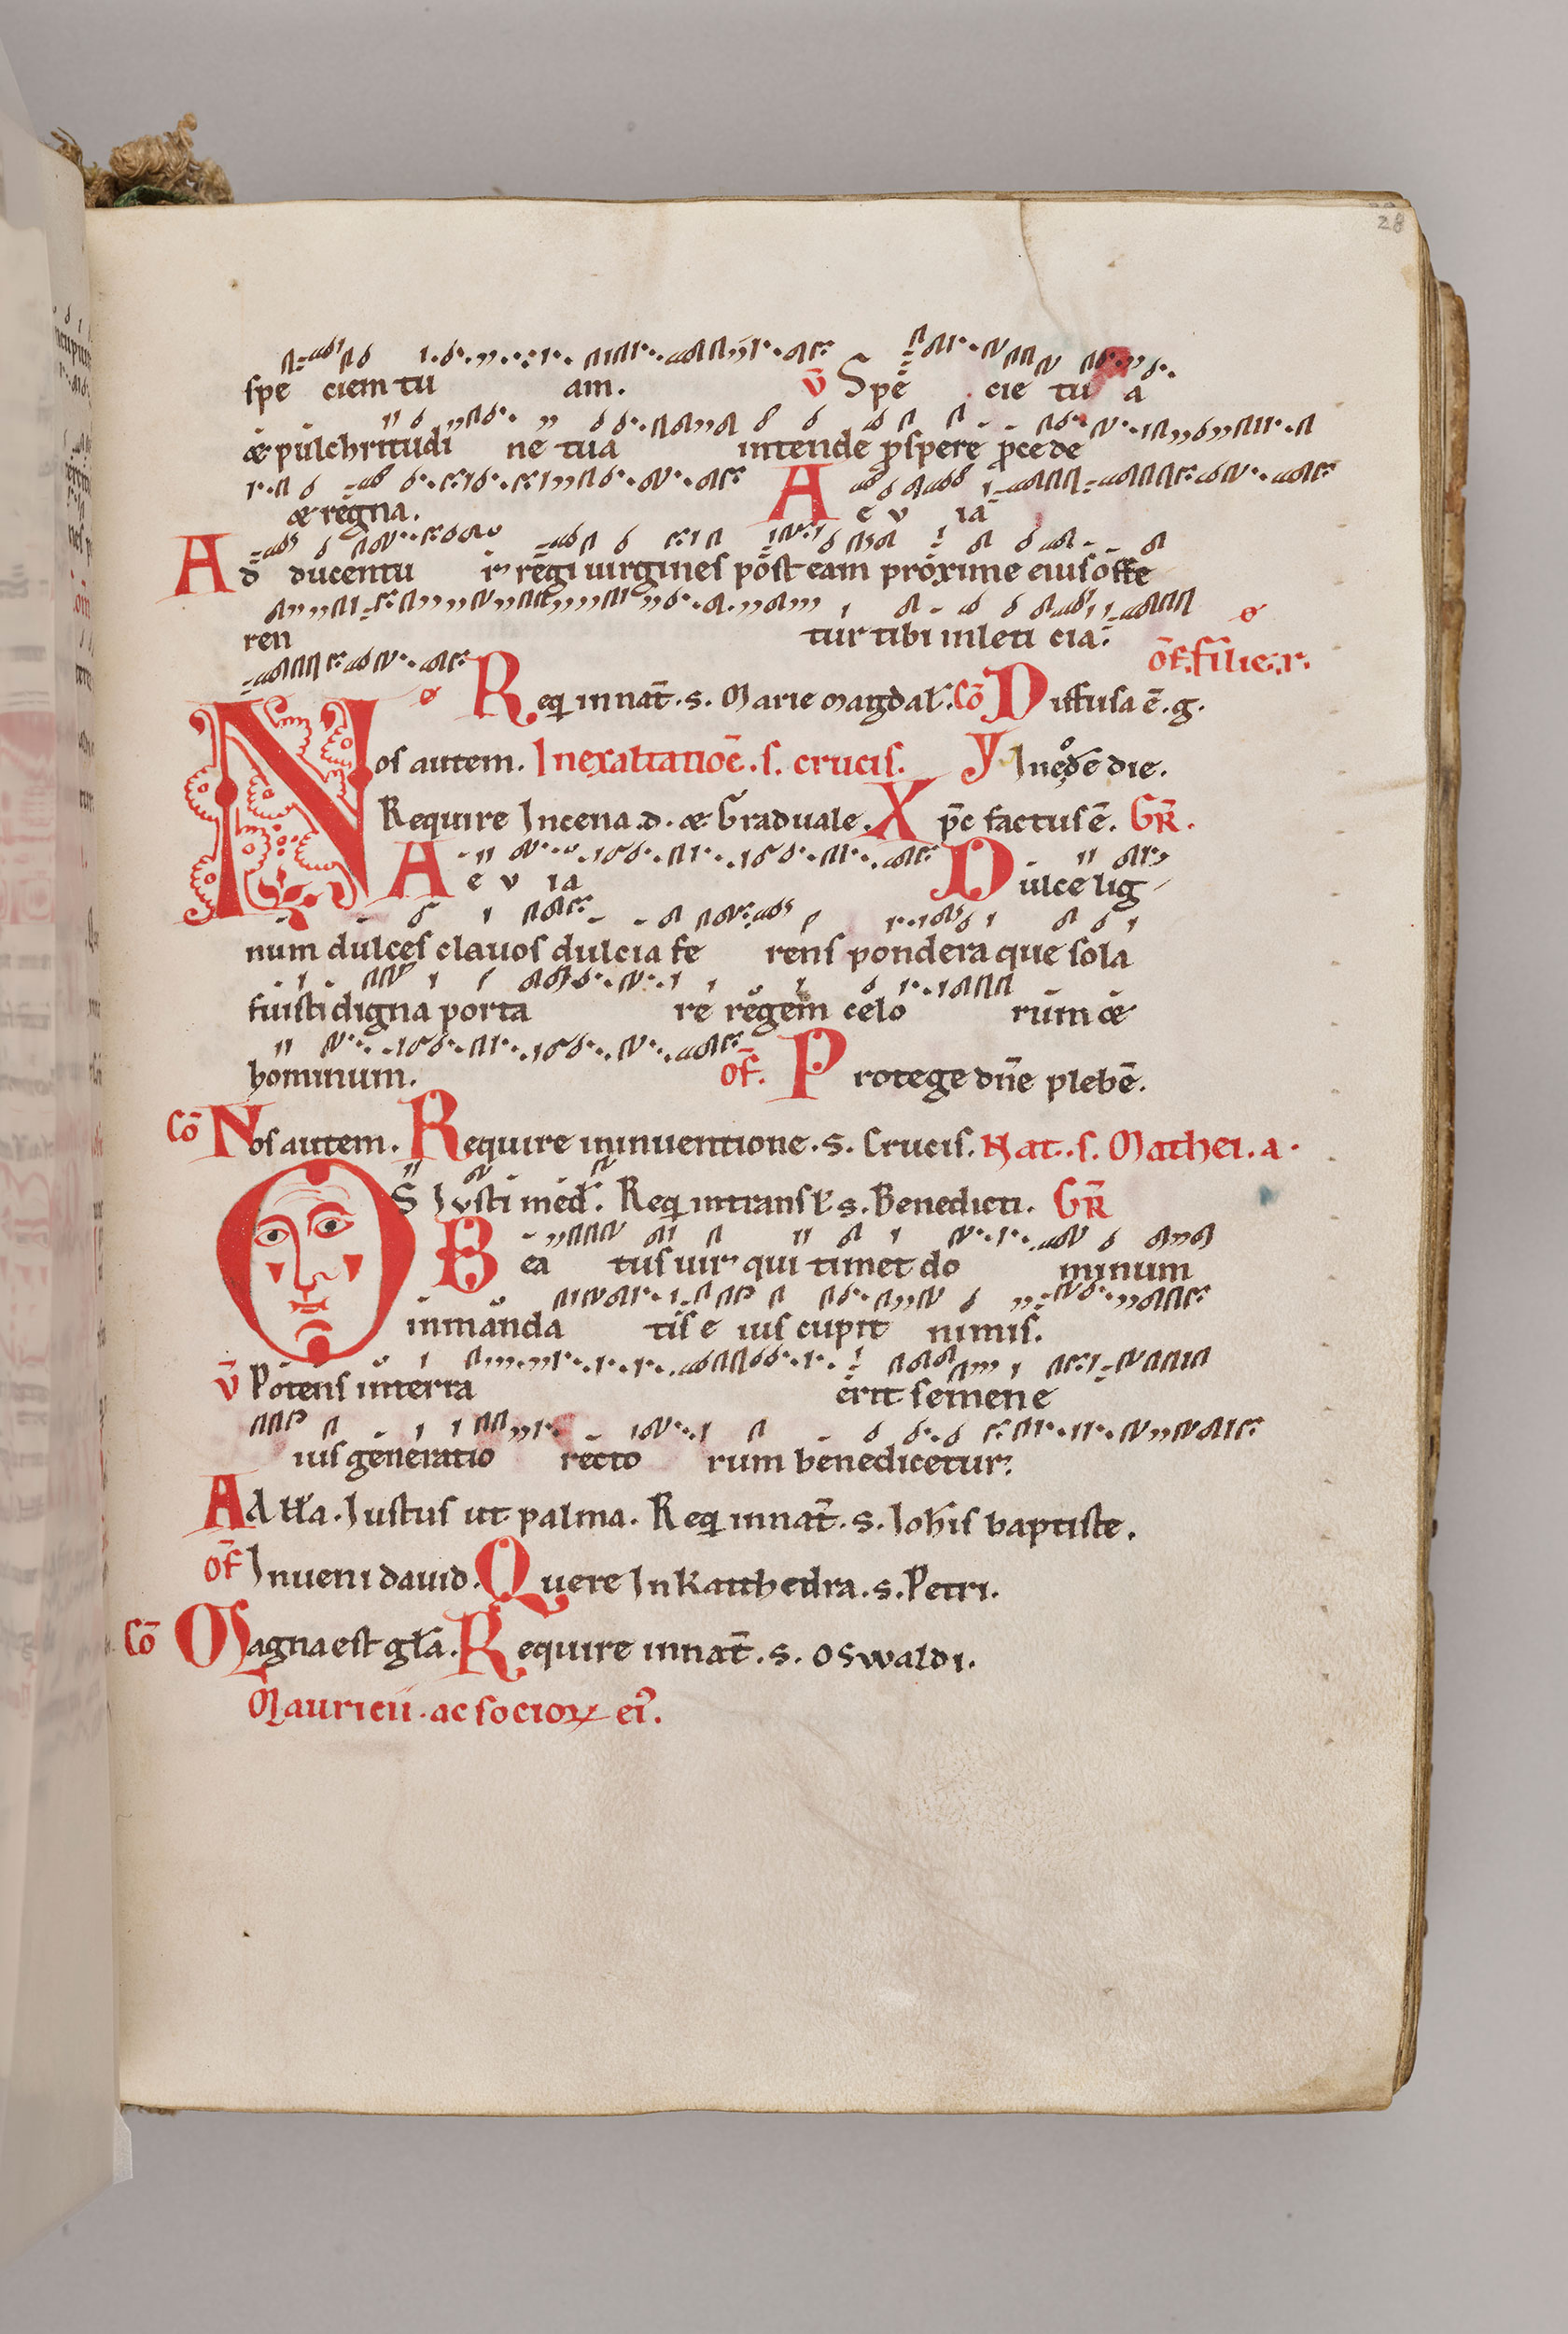 28
spe ciem tu am. v̄ Spe cie tu a
æ pulchritudi ne tua intende ꝓspere ꝓcede
æ regna. A e v ia
Ad ducentu ir regi uirgines post eam proxime eius offe
ren tur tibi inleti cia.
of. filie. r.
Req innat̄. s. Marie magdal. Cō Diffusa ē. g.
Nos autem. In exaltatiōe. s. crucis. y In eodē die.
Require In cena. d. æ Graduale. Xp̄c factus ē. GR̄.
A e v ia Dulce lig
num dulces clauos dulcia fe rens pondera que sola
fuisti digna porta re regem celo rum æ
hominum. of. Protege dn̄e plebē.
Cō Nos autem. Require in inuentione. s. Crucis. Nat. s. Mathei. a.
OS Iusti med. Req in transl. s. Benedicti. GR̄
Bea tus uir qui timet do minum
in manda tis e ius cupit nimis.
v̄ Potens in terra erit semen e
ius generatio recto rum benedicetur.
Ad ałła. Iustus ut palma. Req innat̄. s. Ioh̄is baptiste.
of Inueni dauid. Quere In Kathedra. s. Petri.
Cō Magna est gła. Require innat̄. s. Oswaldi.
Mauricii. ac socioꝝ ei᷒.